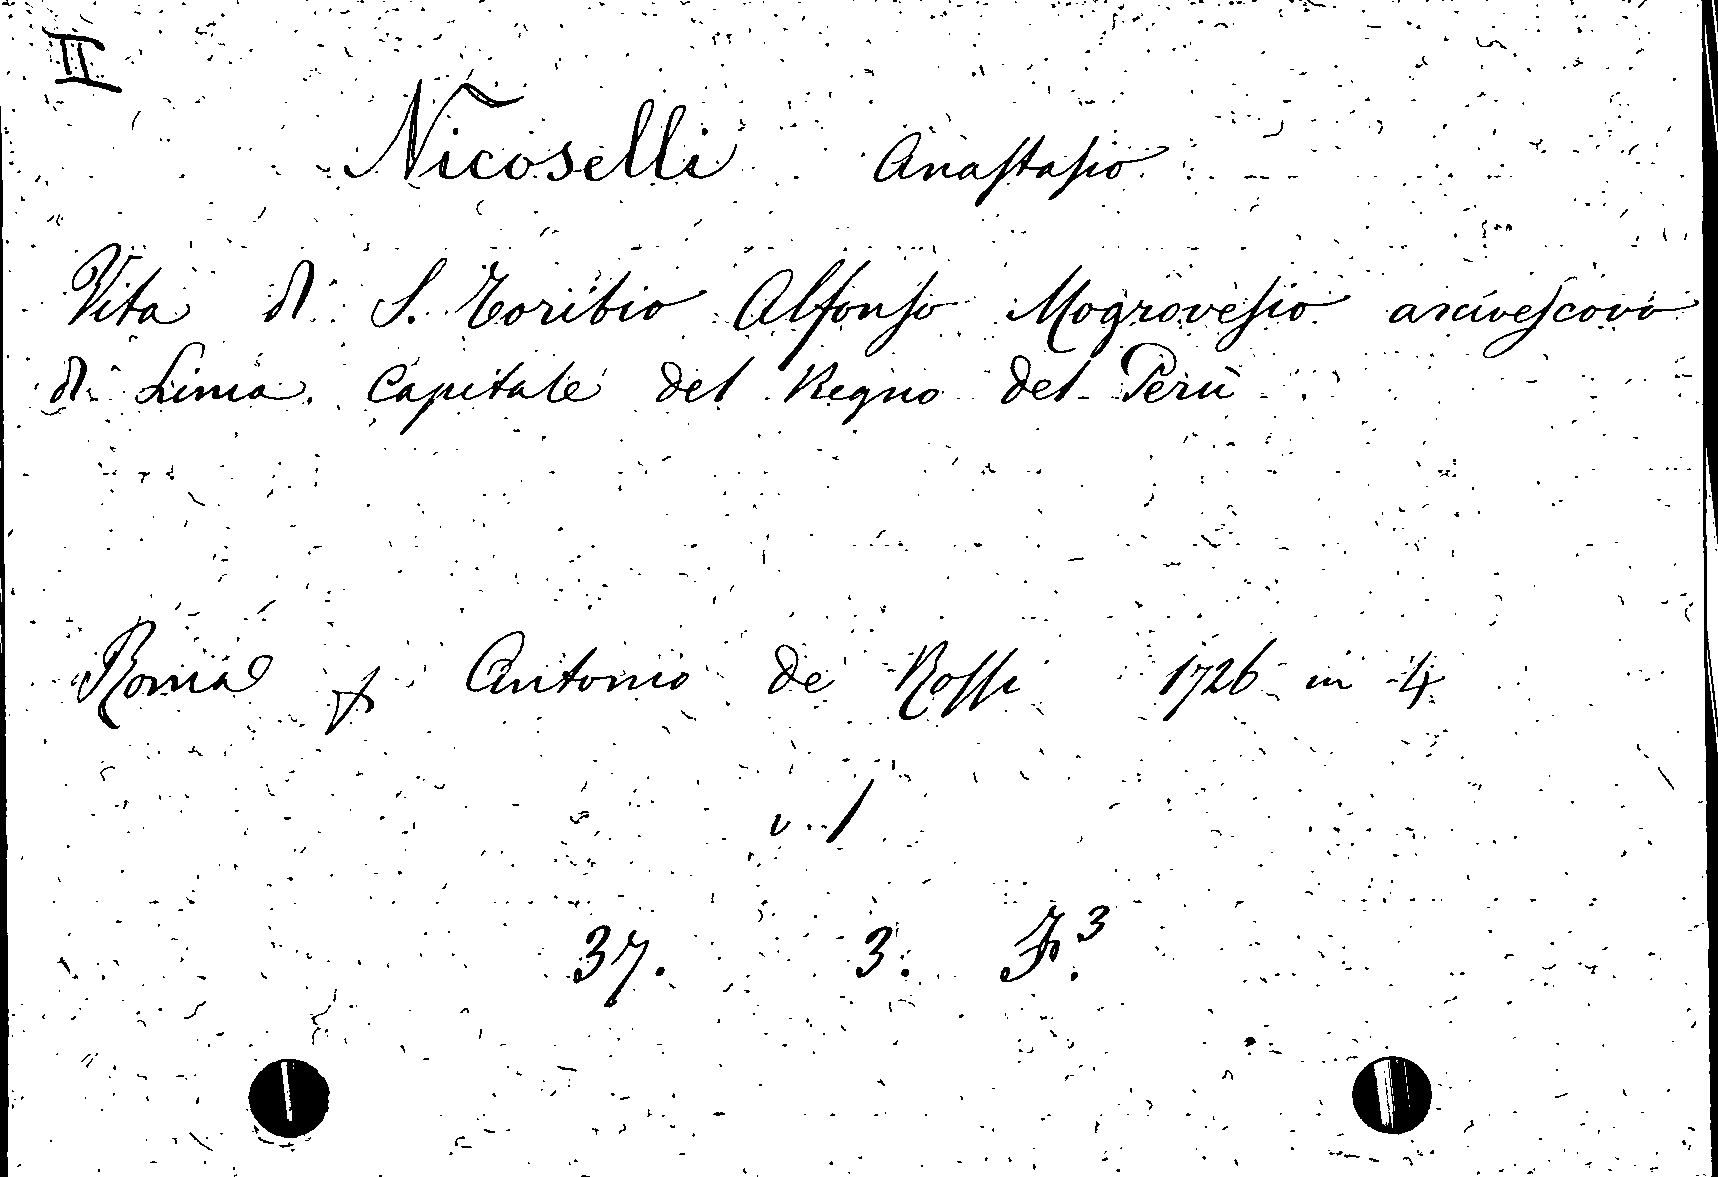 II
Nicoselli Anastasio
Vita di S. Toribio Alfonso Mogrovesio arcivescovo
di Lima. Capitale del Regno del Perù
Roma Antonio de Rossi 1726 in 4
v. 1
37. 3. F.3